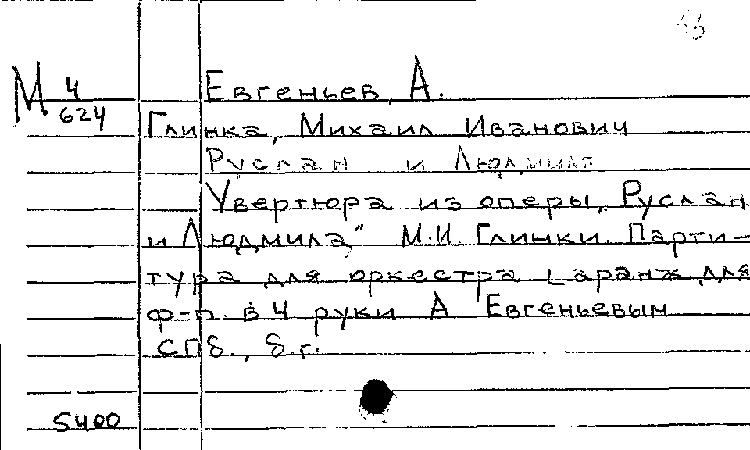 М 4/624 Евгеньев, А.
Глинка, Михаил Иванович
Руслан и Людмила
Увертюра из оперы „Руслан
и Людмила" М.И. Глинки. Парти-
тура для оркестра [аранж. для
ф-п. в 4 руки А Евгеньевым
СПб., б.г.
5400